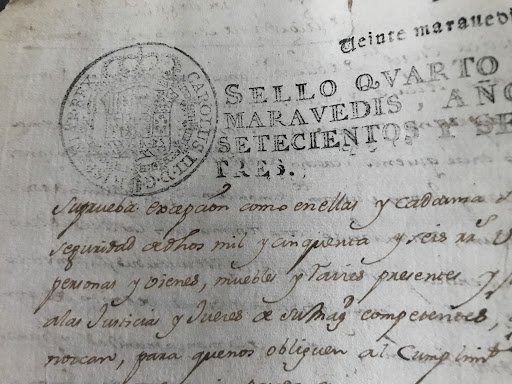 Veinte maraved
SELLO QVARTO
MARAVEDIS, AÑO
SETECIENTOS Y SE
TRES.
CAROLUS III. D. G.
Suprueba excepcion como enellas y cadauna d
seguridad dedhos mil y cinquenta y seis rrs. V
personas y vienes, muebles y rraices presentes y
alas Justicias y Jueces de su Magd. competentes,
nozcan, para quenos obliguen al Cumplimto